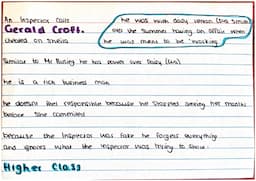 An Inspector Calls
Gerald Croft.
cheated on Sheila
he was with daisy renton (Eva Smith)
over the summer having an affair when
he was meant to be 'working'
Similar to Mr Birling he has power over Daisy (Eva)
he is a rich business man
he doesnt feel responsible because he stopped seeing her months
before she commited
because the inspector was fake he forgets everything
and ignores what the inspector was trying to show.
Higher Class